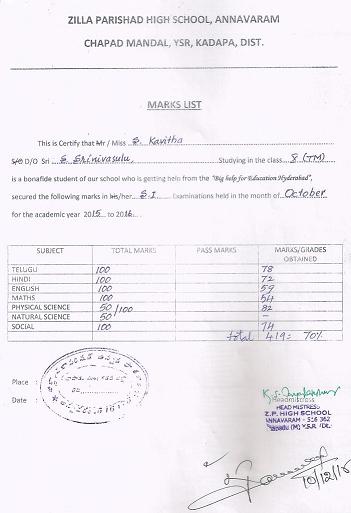 ZILLA PARISHAD HIGH SCHOOL, ANNAVARAM
CHAPAD MANDAL, YSR, KADAPA, DIST.
MARKS LIST
This is Certify that Mr / Miss S. Kavitha
S/O D/O Sri S. Srinivasulu, Studying in the class 8 (TM)
is a bonafide student of our school who is getting help from the "Big help for Education Hyderabad",
secured the following marks in his/her S.I Examinations held in the month of October
for the academic year 2015 to 2016.
SUBJECT TOTAL MARKS PASS MARKS MARKS/GRADES OBTAINED
TELUGU 100 78
HINDI 100 72
ENGLISH 100 59
MATHS 100 54
PHYSICAL SCIENCE 50 /100 82
NATURAL SCIENCE 50 -
SOCIAL 100 74
total 419 = 70%
Place :
Date :
Headmistress
HEAD MISTRESS
Z.P. HIGH SCHOOL
ANNAVARAM - 516 362
10/12/15